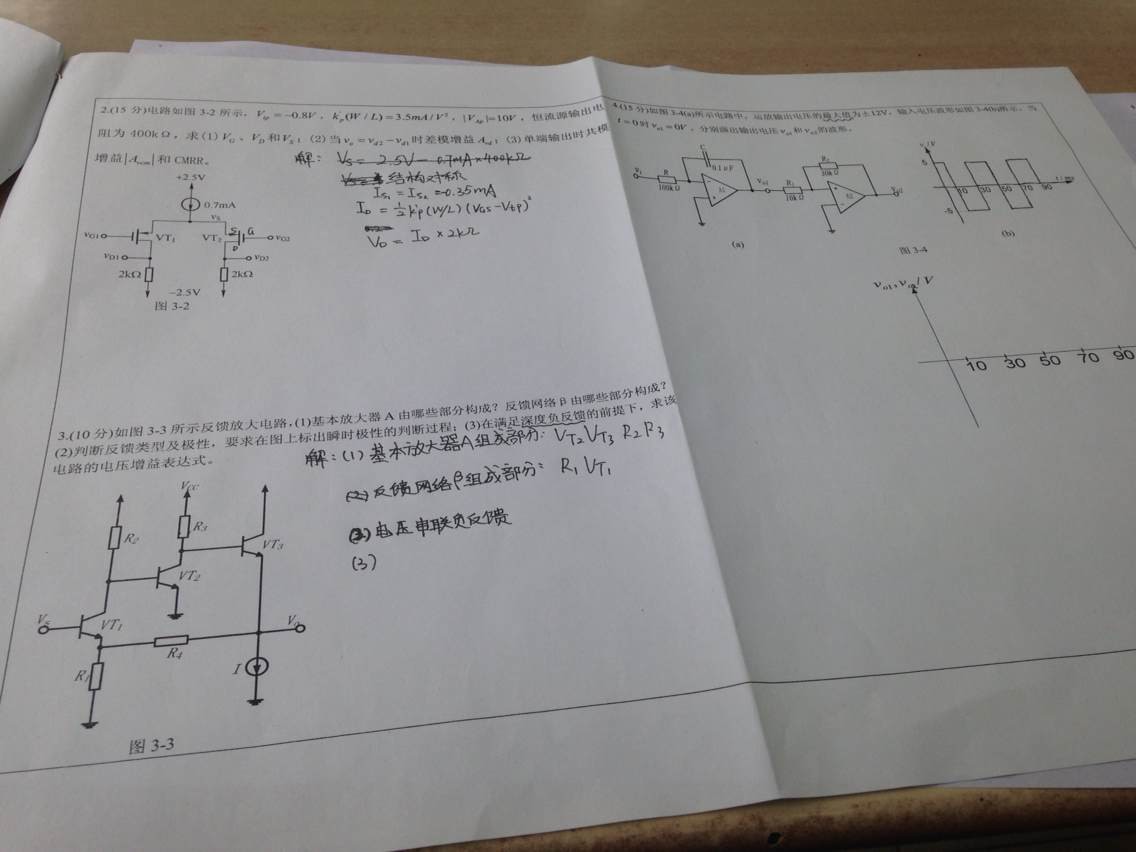 2.(15 分)电路如图 3-2 所示，V_tp=-0.8V，k'_p(W/L)=3.5mA/V²，|V_Ap|=10V，恒流源输出电
阻为 400kΩ，求(1) V_G、V_D和V_S；(2)当v_o=v_d2-v_d1时差模增益A_vd；(3)单端输出时共模
增益|A_vcm|和 CMRR。
解： V_S = 2.5V - 0.7mA×400kΩ
结构对称
I_S1 = I_S2 = 0.35mA
I_D = ½k'p(W/L)(V_GS-V_tp)²
V_D = I_D × 2kΩ
+2.5V
0.7mA
v_S
v_G1
VT₁
VT₂
S
G
D
v_G2
v_D1
v_D2
2kΩ
2kΩ
-2.5V
图 3-2
3.(10 分)如图 3-3 所示反馈放大电路,(1)基本放大器 A 由哪些部分构成？反馈网络 β 由哪些部分构成？
(2)判断反馈类型及极性，要求在图上标出瞬时极性的判断过程；(3)在满足深度负反馈的前提下，求该
电路的电压增益表达式。
解：(1) 基本放大器A组成部分： V_T2 V_T3 R2 R3
(2) 反馈网络β组成部分： R₁ V_T1
(2) 电压串联负反馈
(3)
V_CC
R₂
R₃
VT₃
VT₂
V_s
VT₁
V_o
R₄
R₁
I
图 3-3
4.(15 分)如图 3-4(a)所示电路中，运放输出电压的最大值为±12V，输入电压波形如图 3-4(b)所示，当
t=0时 v_o1=0V，分别画出输出电压 v_o1和v_o2的波形。
C
0.1μF
v_i
R
100kΩ
A1
v_o1
R₁
10kΩ
R₂
10kΩ
A2
v_o2
(a)
v_i/V
5
-5
10 30 50 70 90
t/ms
(b)
图 3-4
v_o1,v_o2/V
10 30 50 70 90